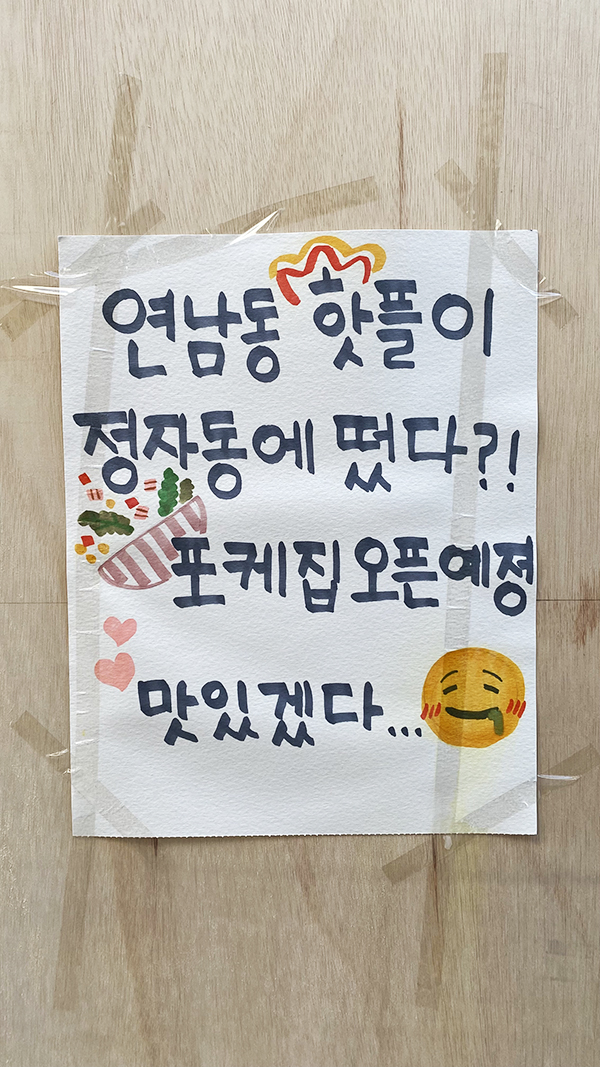 연남동 핫플이
정자동에 떴다?!
포케집 오픈예정
맛있겠다...